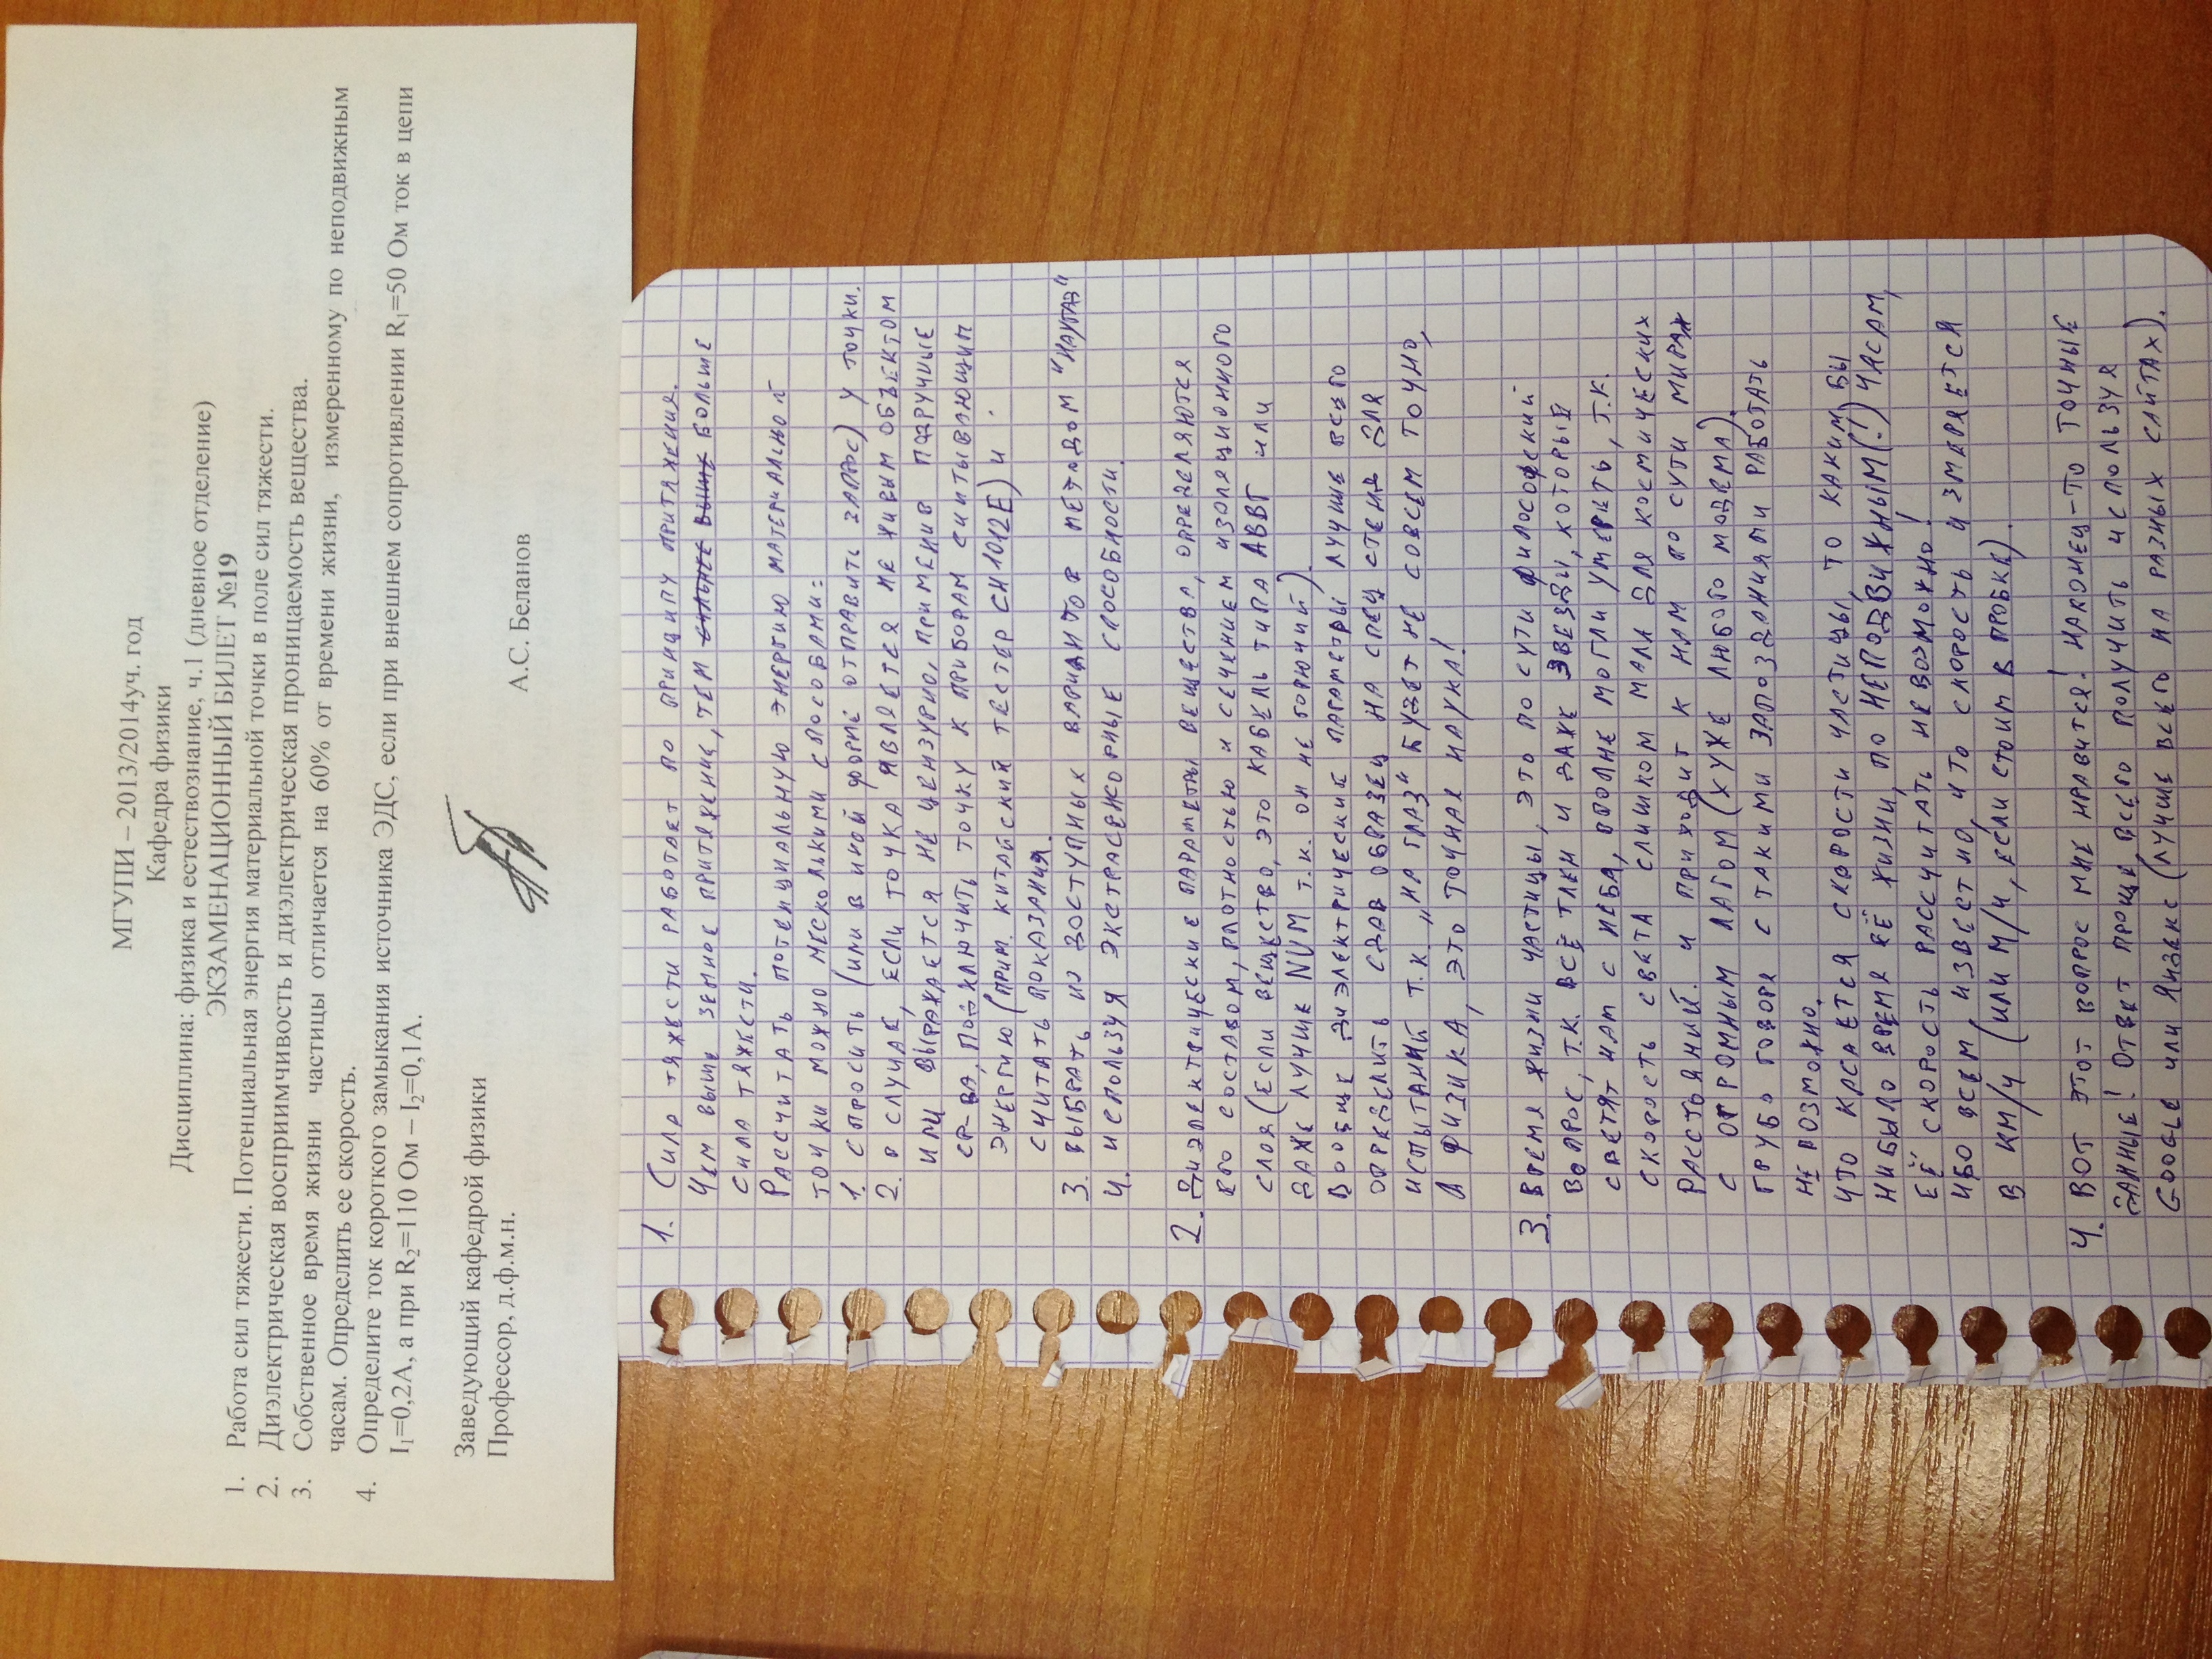 МГУПИ – 2013/2014уч. год
Кафедра физики
Дисциплина: физика и естествознание, ч.1 (дневное отделение)
ЭКЗАМЕНАЦИОННЫЙ БИЛЕТ №19
1. Работа сил тяжести. Потенциальная энергия материальной точки в поле сил тяжести.
2. Диэлектрическая восприимчивость и диэлектрическая проницаемость вещества.
3. Собственное время жизни частицы отличается на 60% от времени жизни, измеренному по неподвижным
часам. Определить ее скорость.
4. Определите ток короткого замыкания источника ЭДС, если при внешнем сопротивлении R₁=50 Ом ток в цепи
I₁=0,2А, а при R₂=110 Ом – I₂=0,1А.
Заведующий кафедрой физики
Профессор, д.ф.м.н. А.С. Беланов
1. Сила тяжести работает по принципу притяжения.
Чем выше земное притяжение, тем сильнее выше больше
сила тяжести.
Рассчитать потенциальную энергию материальной
точки можно несколькими способами:
1. спросить (или в иной форме отправить запрос) у точки.
2. в случае, если точка является не живым объектом
или выражается не цензурно, применив подручные
ср-ва, подключить точку к приборам считывающим
энергию (прим. китайский тестер СН1012Е) и
считать показания.
3. выбрать из доступных вариантов методом "наугад"
4. используя экстрасенсорные способности.
2. Диэлектрические параметры вещества, определяются
его составом, плотностью и сечением изоляционного
слоя (если вещество, это кабель типа АВВГ или
даже лучше NUM т.к. он не горючий).
Вообще диэлектрические параметры лучше всего
определить сдав образец на спец стенд для
испытаний т.к. "на глаз" будет не совсем точно,
а физика, это точная наука!
3. Время жизни частицы, это по сути философский
вопрос, т.к. всё тлен и даже звезды, которые
светят нам с неба, вполне могли умереть, т.к.
скорость света слишком мала для космических
расстояний. и приходит к нам по сути мираж
с огромным лагом (хуже любого модема).
грубо говоря с такими запозданиями работать
не возможно.
Что касается скорости частицы, то каким бы
нибыло время её жизни, по НЕПОДВИЖНЫМ(!) часам,
её скорость рассчитать не возможно!
ибо всем известно, что скорость измеряется
в км/ч (или м/ч, если стоим в пробке).
4. Вот этот вопрос мне нравится! Наконец-то точные
данные! Ответ проще всего получить используя
Google или Яндекс (лучше всего на разных сайтах).